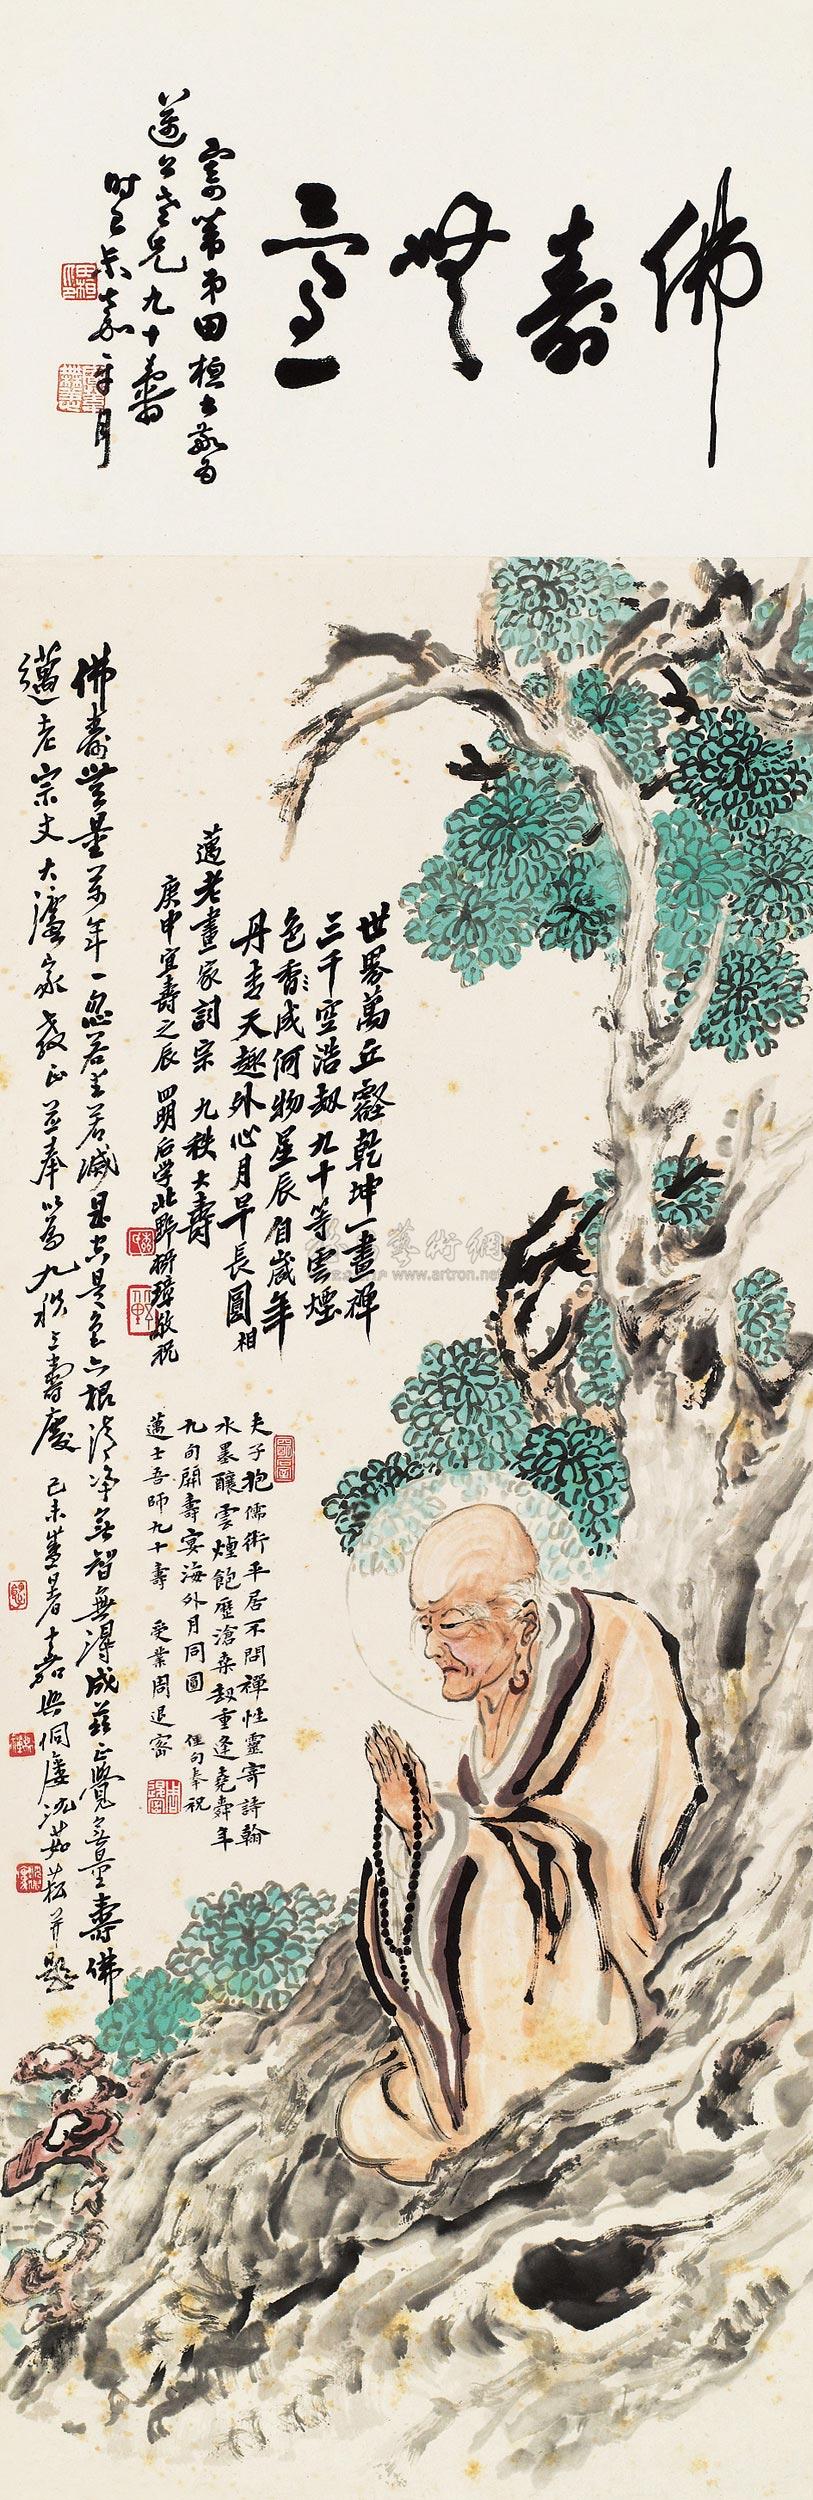 佛壽無量
寄篱弟田桓
邁公老兄九十壽
時己未嘉平月
世界萬丘壑乾坤一畫禪
三千空浩劫九十等雲煙
色香成何物星辰自歲年
丹青天趣外心月早長圓相
邁老畫家詞宗九秩大壽
庚申宜壽之辰四明后学北野研璋敬祝
夫子抱儒術平居不問禪性靈寄詩翰
水墨釀雲煙飽歷滄桑劫重逢堯舜年
九旬開壽宴海外月同圓 俚句奉祝
邁士吾師九十壽 受業周退密
佛壽無量萬年一忽若生若滅是空是色六根清净無智無得成兹正覺無量壽佛
邁老宗丈大畫家教正並奉以為九秩之壽慶 己未盛暑嘉興侗廔沈茹菘并題
www.artron.net